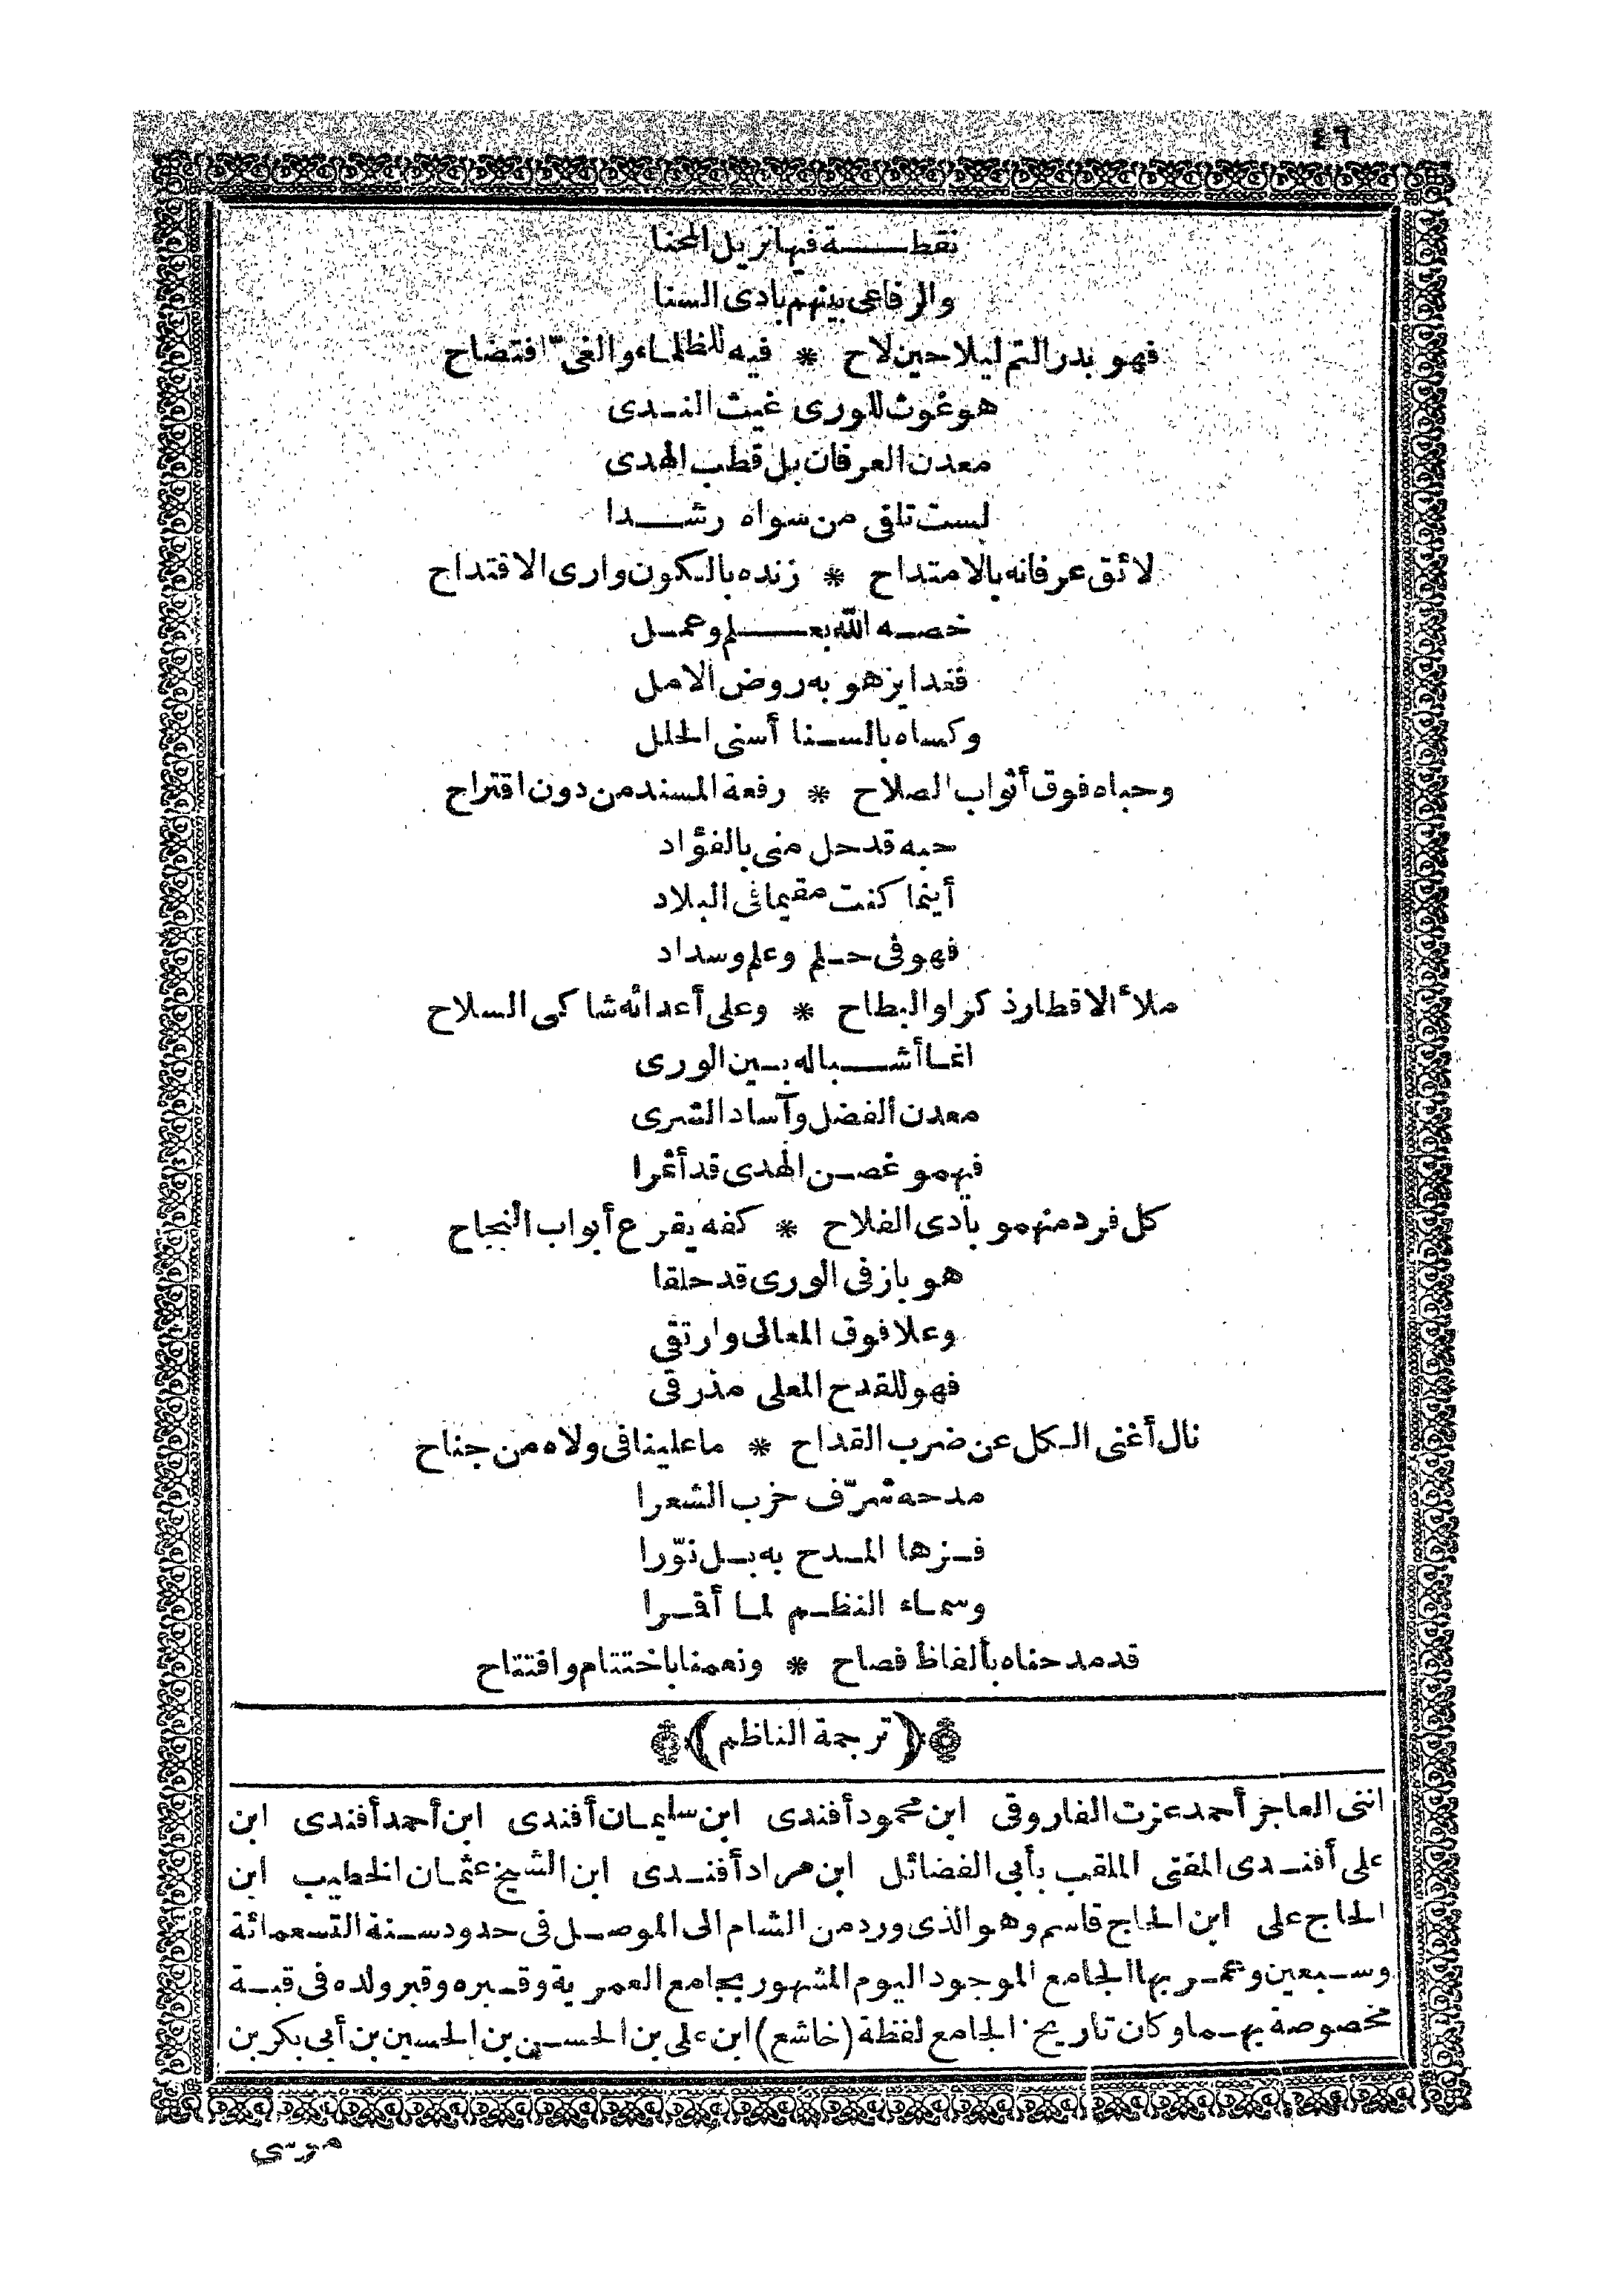 ٤٦
نقطة فيها نزيل المحنا
والرفاعى بينهم بادى السنا
فهو بدر التم ليلا حين لاح * فيه للظلماء والغىّ افتضاح
هو غوث للورى غيث الندى
معدن العرفان بل قطب الهدى
لست تلقى من سواه رشدا
لائق عرفانه بالامتداح * زنده بالكون وارى الاقتداح
خصه الله بعلم وعمل
فغدا يزهو به روض الامل
وكساه بالسنا أسنى الحلل
وحباه فوق أثواب الصلاح * رفعة المسند من دون اقتراح
حبه قد حل منى بالفؤاد
أينما كنت مقيما فى البلاد
فهو فى حلم وعلم وسداد
ملأ الاقطار ذكرا والبطاح * وعلى أعدائه شاكى السلاح
انما أشباله بين الورى
معدن الفضل وآساد الشرى
فيهمو غصن الهدى قد أثمرا
كل فرد منهمو بادى الفلاح * كفه يقرع أبواب النجاح
هو باز فى الورى قد حلقا
وعلا فوق المعالى وارتقى
فهو للقدح المعلى مذ رقى
نال أغنى الكل عن ضرب القداح * ما علينا فى ولاه من جناح
مدحه شرّف حزب الشعرا
فزها المدح به بل نوّرا
وسماء النظم لما أقمرا
قد مدحناه بألفاظ فصاح * ونعمنا باختتام وافتتاح
(ترجمة الناظم)
اننى العاجز أحمد عزت الفاروقى ابن محمود أفندى ابن سليمان أفندى ابن أحمد أفندى ابن
على أفندى المفتى الملقب بأبى الفضائل ابن مراد أفندى ابن الشيخ عثمان الخطيب ابن
الحاج على ابن الحاج قاسم وهو الذى ورد من الشام الى الموصل فى حدود سنة التسعمائة
وسبعين وعمر بها الجامع الموجود اليوم المشهور بجامع العمرية وقبره وقبر ولده فى قبة
مخصوصة بهما وكان تاريخ الجامع لفظة (خاشع) ابن على بن الحسن بن الحسين بن أبى بكر بن